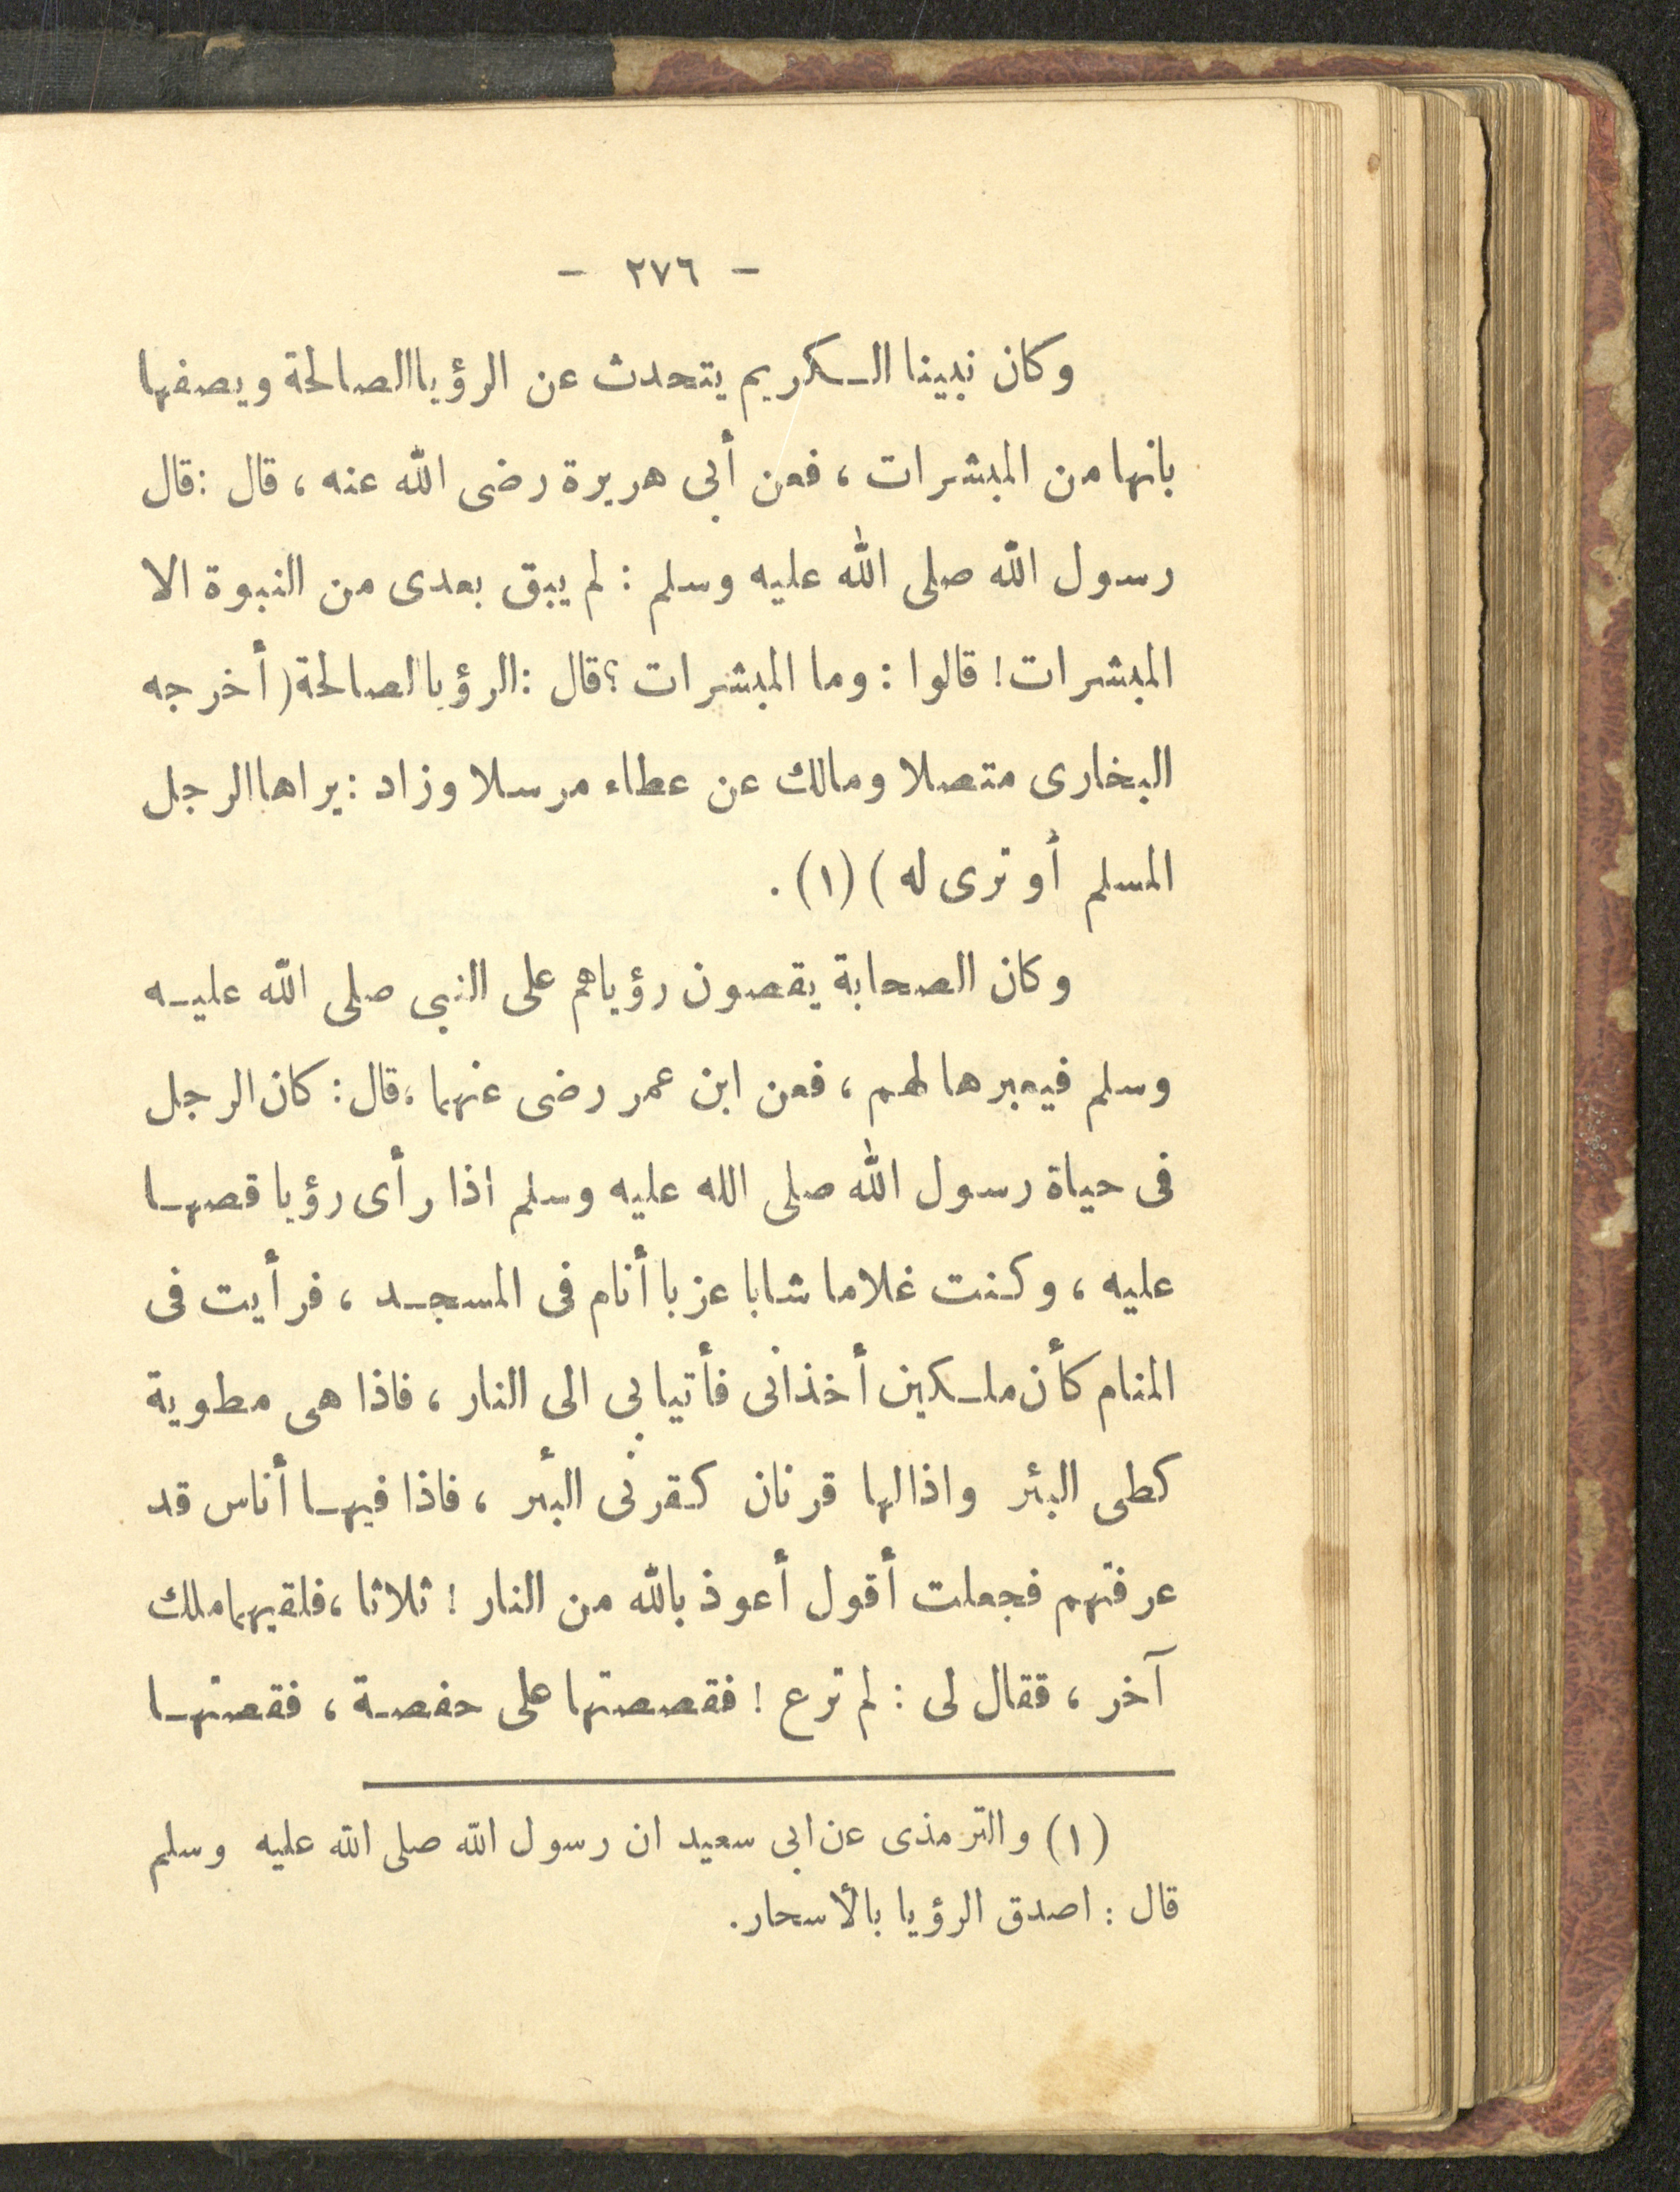 - ٢٧٦ -
وكان نبينا الـكريم يتحدث عن الرؤيا الصالحة ويصفها
بانها من المبشرات ، فعن أبى هريرة رضى الله عنه ، قال : قال
رسول الله صلى الله عليه وسلم : لم يبق بعدى من النبوة الا
المبشرات ! قالوا : وما المبشرات ؟ قال : الرؤيا الصالحة ( أخرجه
البخارى متصلا ومالك عن عطاء مرسلا وزاد : يراها الرجل
المسلم أو ترى له ) (١) .
وكان الصحابة يقصون رؤياهم على النبى صلى الله عليـه
وسلم فيعبرها لهم ، فعن ابن عمر رضى عنهما ، قال : كان الرجل
فى حياة رسول الله صلى الله عليه وسلم اذا رأى رؤيا قصهـا
عليه ، وكنت غلاما شابا عزبا أنام فى المسجـد ، فرأيت فى
المنام كأن ملـكين أخذانى فأتيا بى الى النار ، فاذا هى مطوية
كطى البئر واذا لها قرنان كقرنى البئر ، فاذا فيهـا أناس قد
عرفتهم فجعلت أقول أعوذ بالله من النار ! ثلاثا ، فلقيهما ملك
آخر ، فقال لى : لم ترع ! فقصصتها على حفصـة ، فقصتهـا
(١) والترمذى عن ابى سعيد ان رسول الله صلى الله عليه وسلم
قال : اصدق الرؤيا بالأسحار .